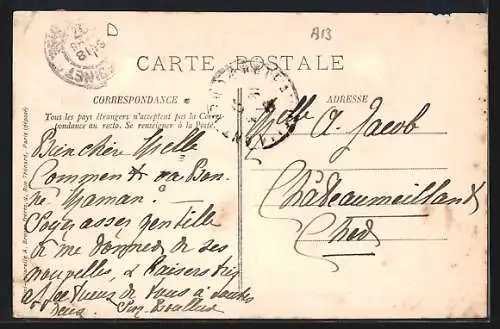 A13
D
CARTE POSTALE
CORRESPONDANCE
ADRESSE
Tous les pays étrangers n'acceptent pas la Corres-
pondance au recto. Se renseigner à la Poste.
Mlle A. Jacob
Châteaumeillant
Cher
Bien chère Melle
Comment va bon-
ne Maman.
Soyez assez gentille
de me donner de ses
nouvelles, & Baisers très
affectueux de tous à toutes
deux.